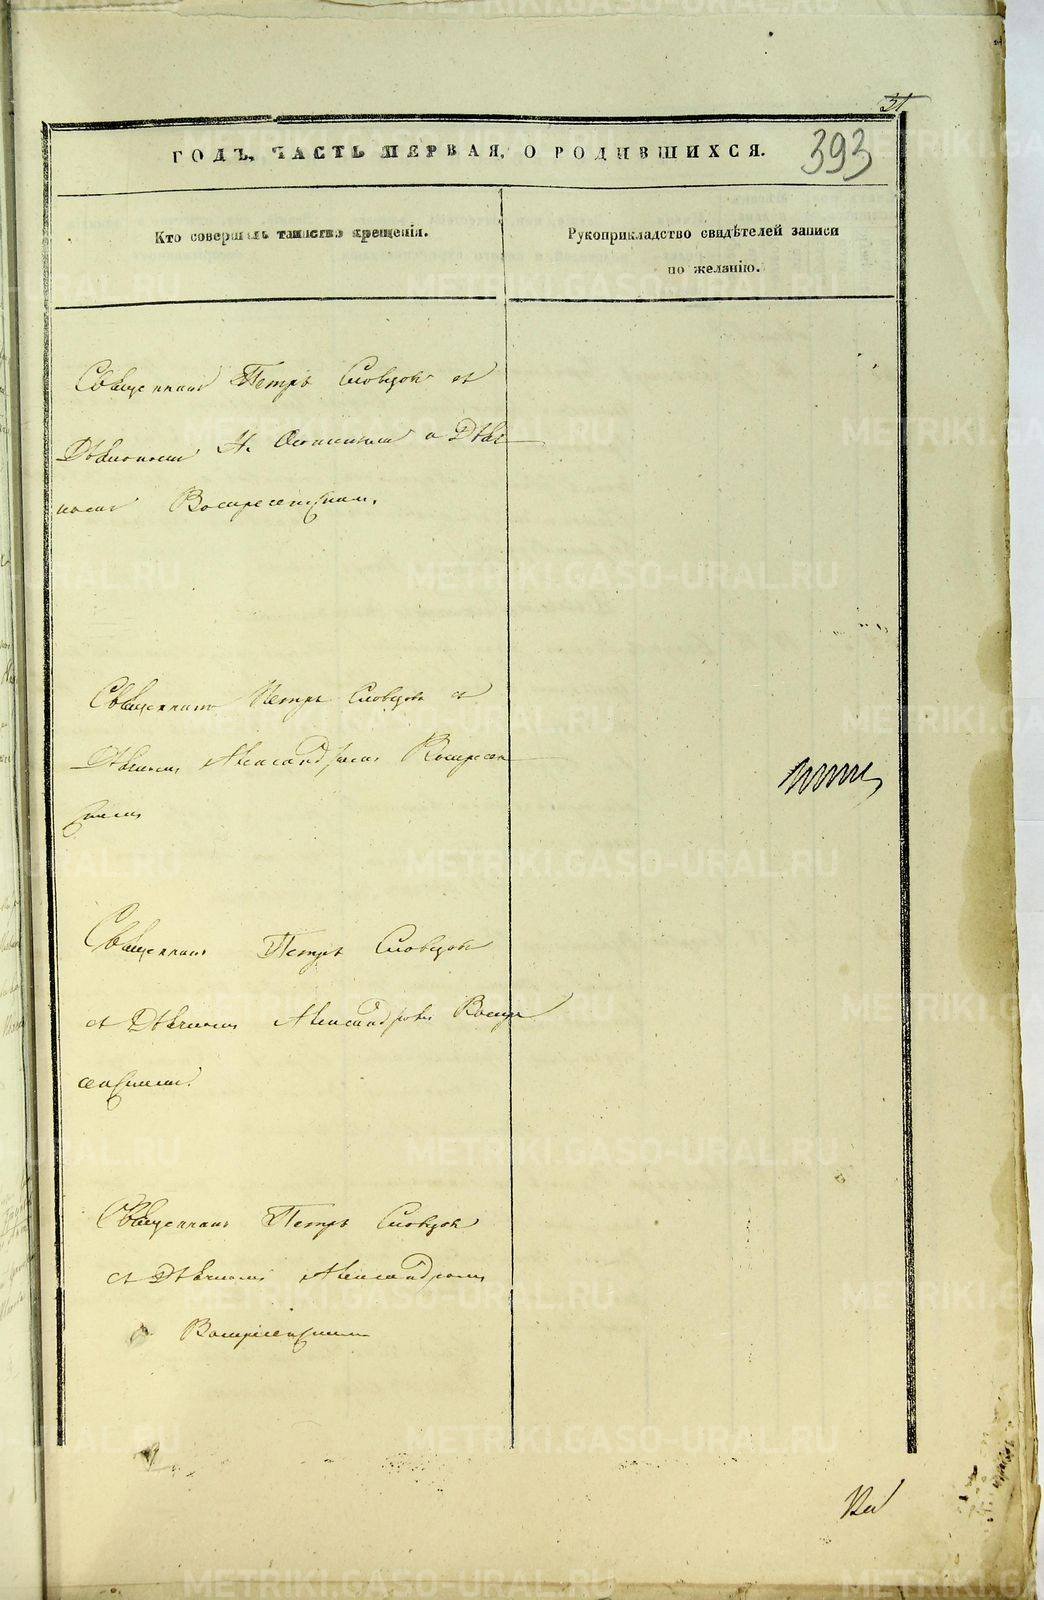 31
393
ГОДЪ, ЧАСТЬ ПЕРВАЯ, О РОДИВШИХСЯ.
Кто совершалъ таинство крещенія.
Рукоприкладство свидѣтелей записи
по желанію.
Священникъ Петръ Словцовъ съ
и Дьяч
комъ Воскресенскимъ.
Священникъ Петръ Словцовъ съ
Дьячкомъ Александромъ Воскресен
скимъ
Священникъ Петръ Словцовъ
съ Дьячкомъ Александромъ Воскре
сенскимъ.
Священникъ Петръ Словцовъ
съ Дьячкомъ Александромъ
Воскресенскимъ
METRIKI.GASO-URAL.RU